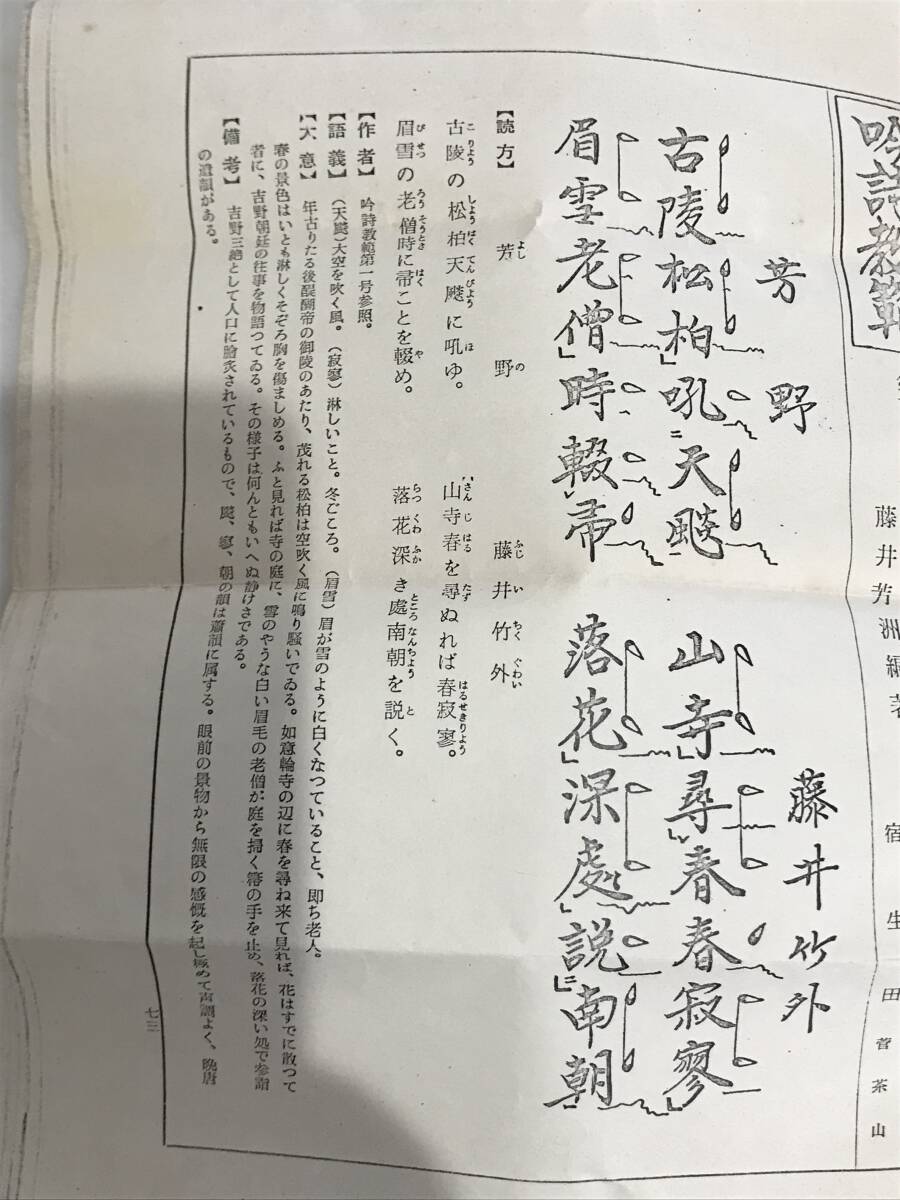 吟詩教範
藤井芳洲編著
宿 生田 菅茶山
芳野 藤井竹外
古陵松柏吼天飈 山寺尋春春寂寥
眉雪老僧時輟帚 落花深處説南朝
【読方】 芳野 藤井竹外
古陵の松柏天飈に吼ゆ。 山寺春を尋ぬれば春寂寥。
眉雪の老僧時に帚くことを輟め。 落花深き處南朝を説く。
【作者】 吟詩教範第一号参照。
【語義】 (天飈)大空を吹く風。(寂寥)淋しいこと。冬ごころ。(眉雪)眉が雪のように白くなつていること、即ち老人。
【大意】 年古りたる後醍醐帝の御陵のあたり、茂れる松柏は空吹く風に鳴り騒いでゐる。如意輪寺の辺に春を尋ね来て見れば、花はすでに散つて
春の景色はいとも淋しくそぞろ胸を傷ましめる。ふと見れば寺の庭に、雪のやうな白い眉毛の老僧が庭を掃く箒の手を止め、落花の深い処で参詣
者に、吉野朝廷の往事を物語つてゐる。その様子は何んともいへぬ静けさである。
【備考】 吉野三絶として人口に膾炙されているもので、飈、寥、朝の韻は蕭韻に属する。眼前の景物から無限の感慨を起し極めて声調よく、晩唐
の遺韻がある。
七三